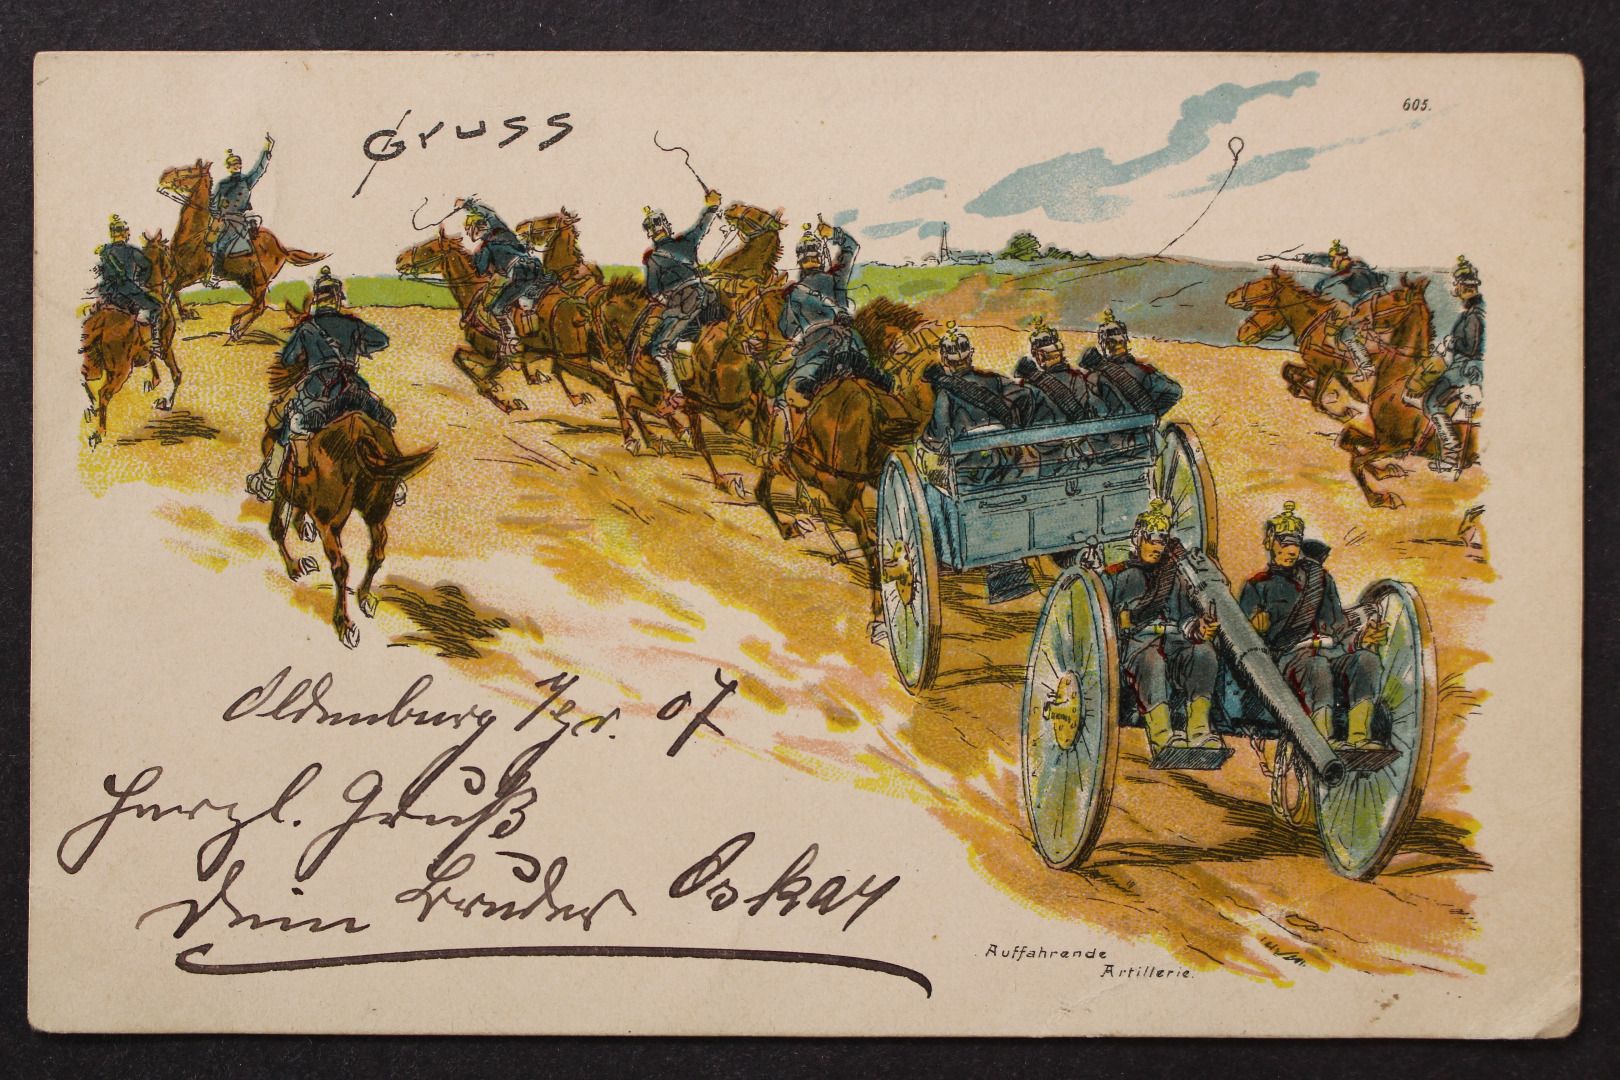 605.
Gruss
Oldenburg 07
Herzl. Gruß
Dein Bruder Oskar
Auffahrende
Artillerie.